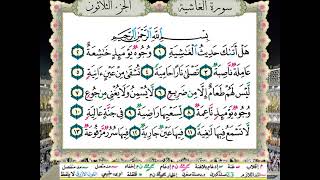 سورة الغاشية الجزء الثلاثون
بِسْمِ ٱللَّهِ ٱلرَّحْمَٰنِ ٱلرَّحِيمِ
هَلْ أَتَىٰكَ حَدِيثُ ٱلْغَٰشِيَةِ ١ وُجُوهٌ يَوْمَئِذٍ خَٰشِعَةٌ ٢
عَامِلَةٌ نَّاصِبَةٌ ٣ تَصْلَىٰ نَارًا حَامِيَةً ٤ تُسْقَىٰ مِنْ عَيْنٍ ءَانِيَةٍ ٥
لَّيْسَ لَهُمْ طَعَامٌ إِلَّا مِن ضَرِيعٍ ٦ لَّا يُسْمِنُ وَلَا يُغْنِي مِن جُوعٍ ٧
وُجُوهٌ يَوْمَئِذٍ نَّاعِمَةٌ ٨ لِّسَعْيِهَا رَاضِيَةٌ ٩ فِي جَنَّةٍ عَالِيَةٍ ١٠
لَّا تَسْمَعُ فِيهَا لَٰغِيَةً ١١ فِيهَا عَيْنٌ جَارِيَةٌ ١٢ فِيهَا سُرُرٌ مَّرْفُوعَةٌ ١٣